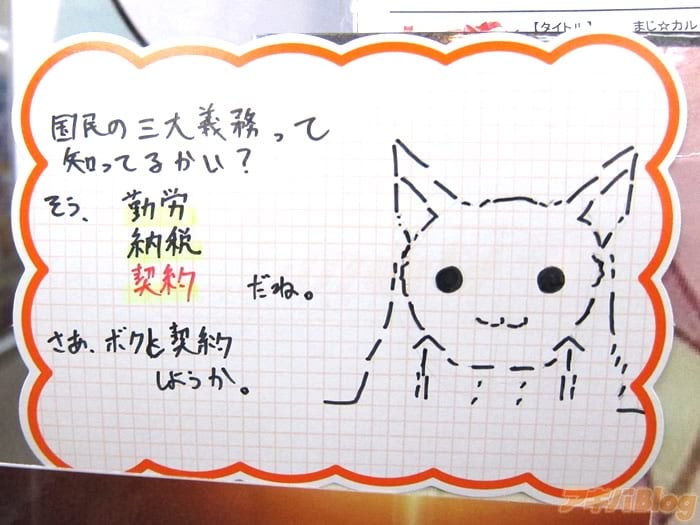 【タイトル】 まじ☆カル
国民の三大義務って
知ってるかい？
そう、勤労
納税
契約 だね。
さあ、ボクと契約
しようか。
アキバBlog